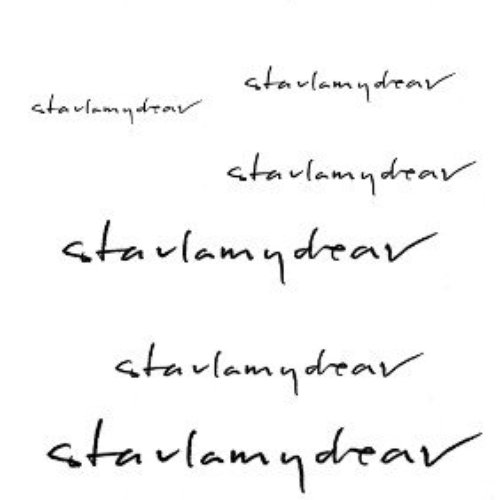 stavlamydear
stavlamydear
stavlamydear
stavlamydear
stavlamydear
stavlamydear